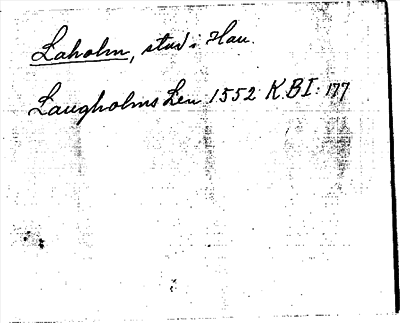 Laholm, stad i Hau.
Laugholms Len 1552 K.B I: 177